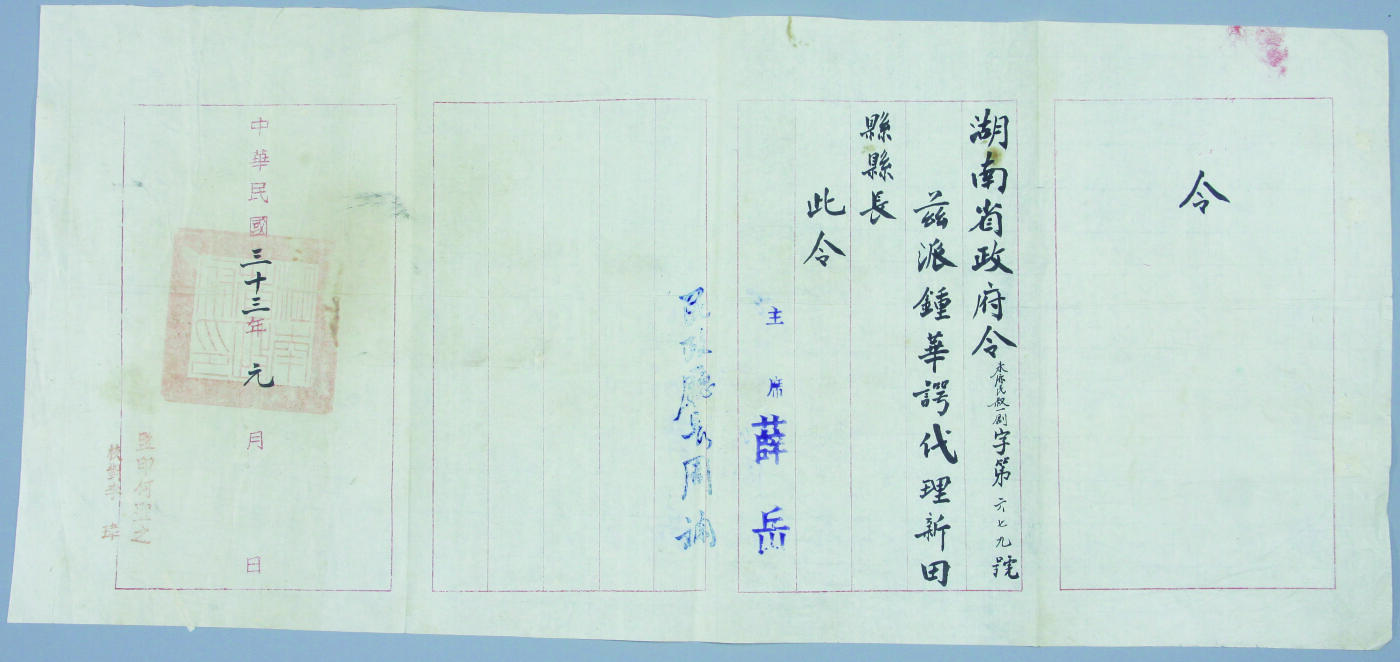 令
湖南省政府令 字第六七九號
茲派鍾華諤代理新田
縣縣長
此令
主席薛岳
民政廳長周
中華民國三十三年元月 日
監印何聖之
校對李 瑋